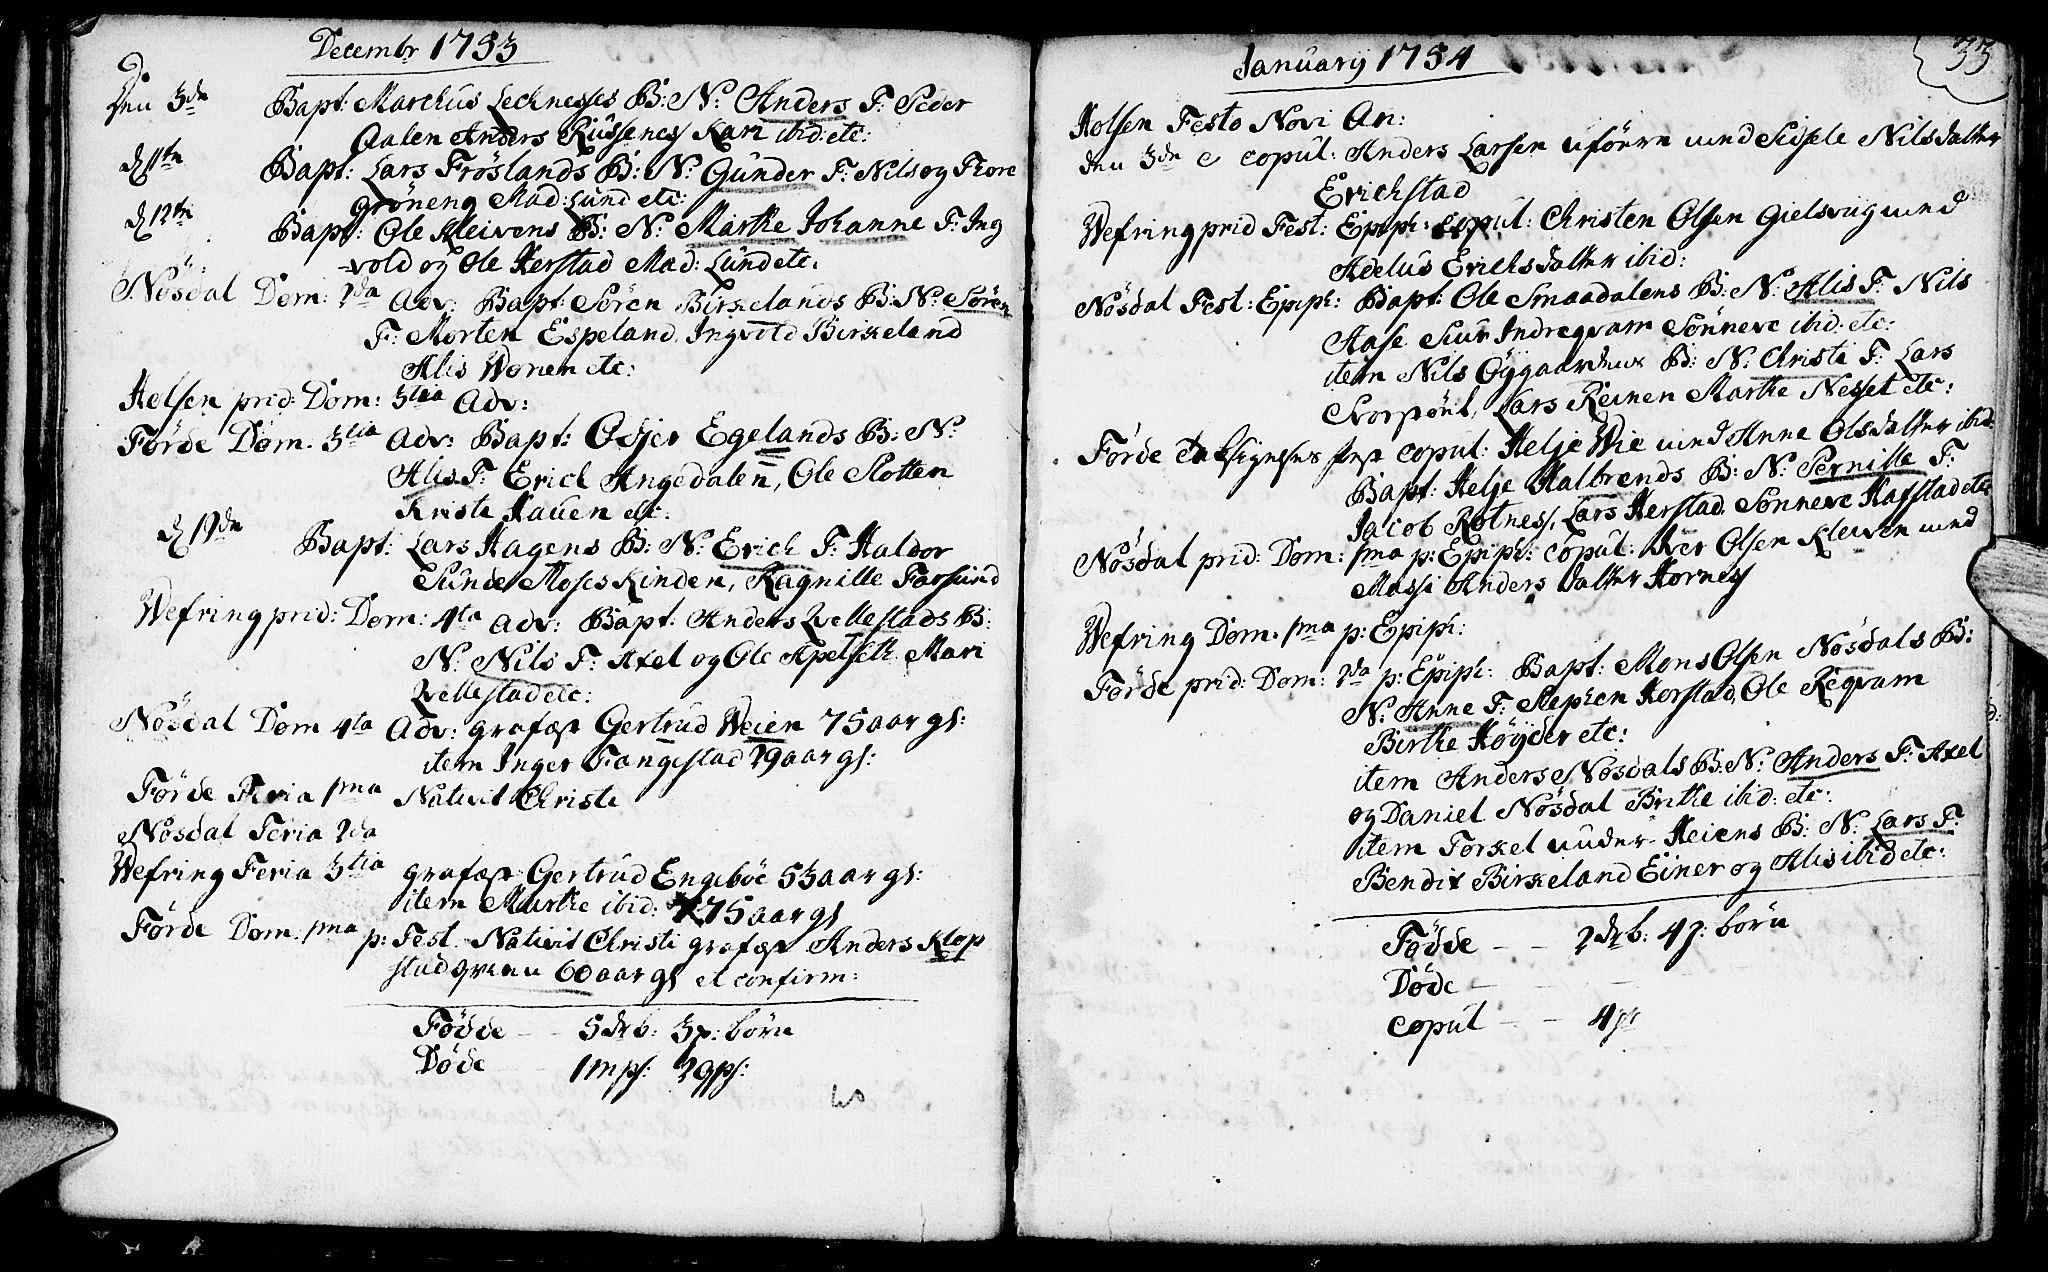 Decembr 1753
Den 3de Bapt: Marckus Lecknesses B: N: Anders F: Peder
Aalen Anders Russenes Kari ibid: etc:
d 11te Bapt: Lars Fröslands B: N: Gunder F: Nils og Thore
Gröneng Mad: Lund etc:
d 12te Bapt: Ole Kleivens B: N: Marthe Johanne F: Ing
vold og Ole Herstad Mad: Lund etc.
Nösdal Dom: 2da Adv: Bapt: Sören Birkelands B: N: Sören
F: Morten Espeland, Ingvold Birkeland
Alis Wonen etc:
Holsen prid: Dom: 3tia Adv:
Förde Dom. 3tia Adv: Bapt: Odjer Egelands B: N:
Alis F: Erich Angedalen, Ole Slotten
Kriste Hauen etc:
d 19de Bapt: Lars Hagens B: N: Erich F: Haldor
Sunde Moses Kinden, Ragnille Farsund
Wefring prid: Dom: 4ta Adv: Bapt: Anders Qvellestads B:
N: Nils F: Axel og Ole Apelseth Mari
Qvellestad etc:
Nösdal Dom 4ta Adv: grafæst Gertrud Weien 75 aar gl:
item Inger Frangestad 29 aar gl:
Förde Feria 1ma Nativit Christi
Nösdal Feria 2da
Wefring Feria 3tia grafæst Gertrud Engeböe 53 aar gl:
item Marthe ibid: 75 aar gl
Förde Dom. 1ma p: Fest Nativit Christi grafæst Anders Klop
stad qvinn 60 aar gl et confirm:
Födde - - 5 drb: 3 p: börn
Döde 1 mps: 29ps:
January 1754
33
Holsen Festo Novi An:
den 3de e copul: Anders Larsen uförn med Sisele Nilsdatter
Erichstad
Wefring prid Fest: Epiph: copul: Christen Olsen Gielsviig med
Adelus Erichsdatter ibid:
Nösdal Fest: Epiph: Bapt: Ole Smaadalens B: N: Alis F: Nils
Aase Siur Indreqvam Sönneve ibid: etc:
item Nils Öygaardens B: N: Christi F: Lars
Lars Reinen Marthe Nesset etc:
Förde Taksigelses fest copul: Helje Wie med Anne Olsdatter ibid:
Bapt: Helje Halbrends B: N: Pernille F:
Jacob Rotness, Lars Herstad Sönneve Hafstad etc
Nösdal prid: Dom: 1ma p: Epiph: copul: Iver Olsen Kleiven med
Massi Anders datter Horness
Wefring Dom: 1ma p: Epiph:
Förde prid: Dom: 2da p: Epiph: Bapt: Mons Olsen Nösdals B:
N: Anne F: Stephen Herstad, Ole Reqvam
Birthe Höyder etc:
item Anders Nösdals B: N: Anders F: Axel
og Daniel Nösdal Brithe ibid: etc:
item Torkel under-Heiens B: N: Lars F:
Bendix Birkeland Einer og Alis ibid etc:
Födde - - 2 drb: 4 p: börn
Döde - - -
copul - - 4 pr